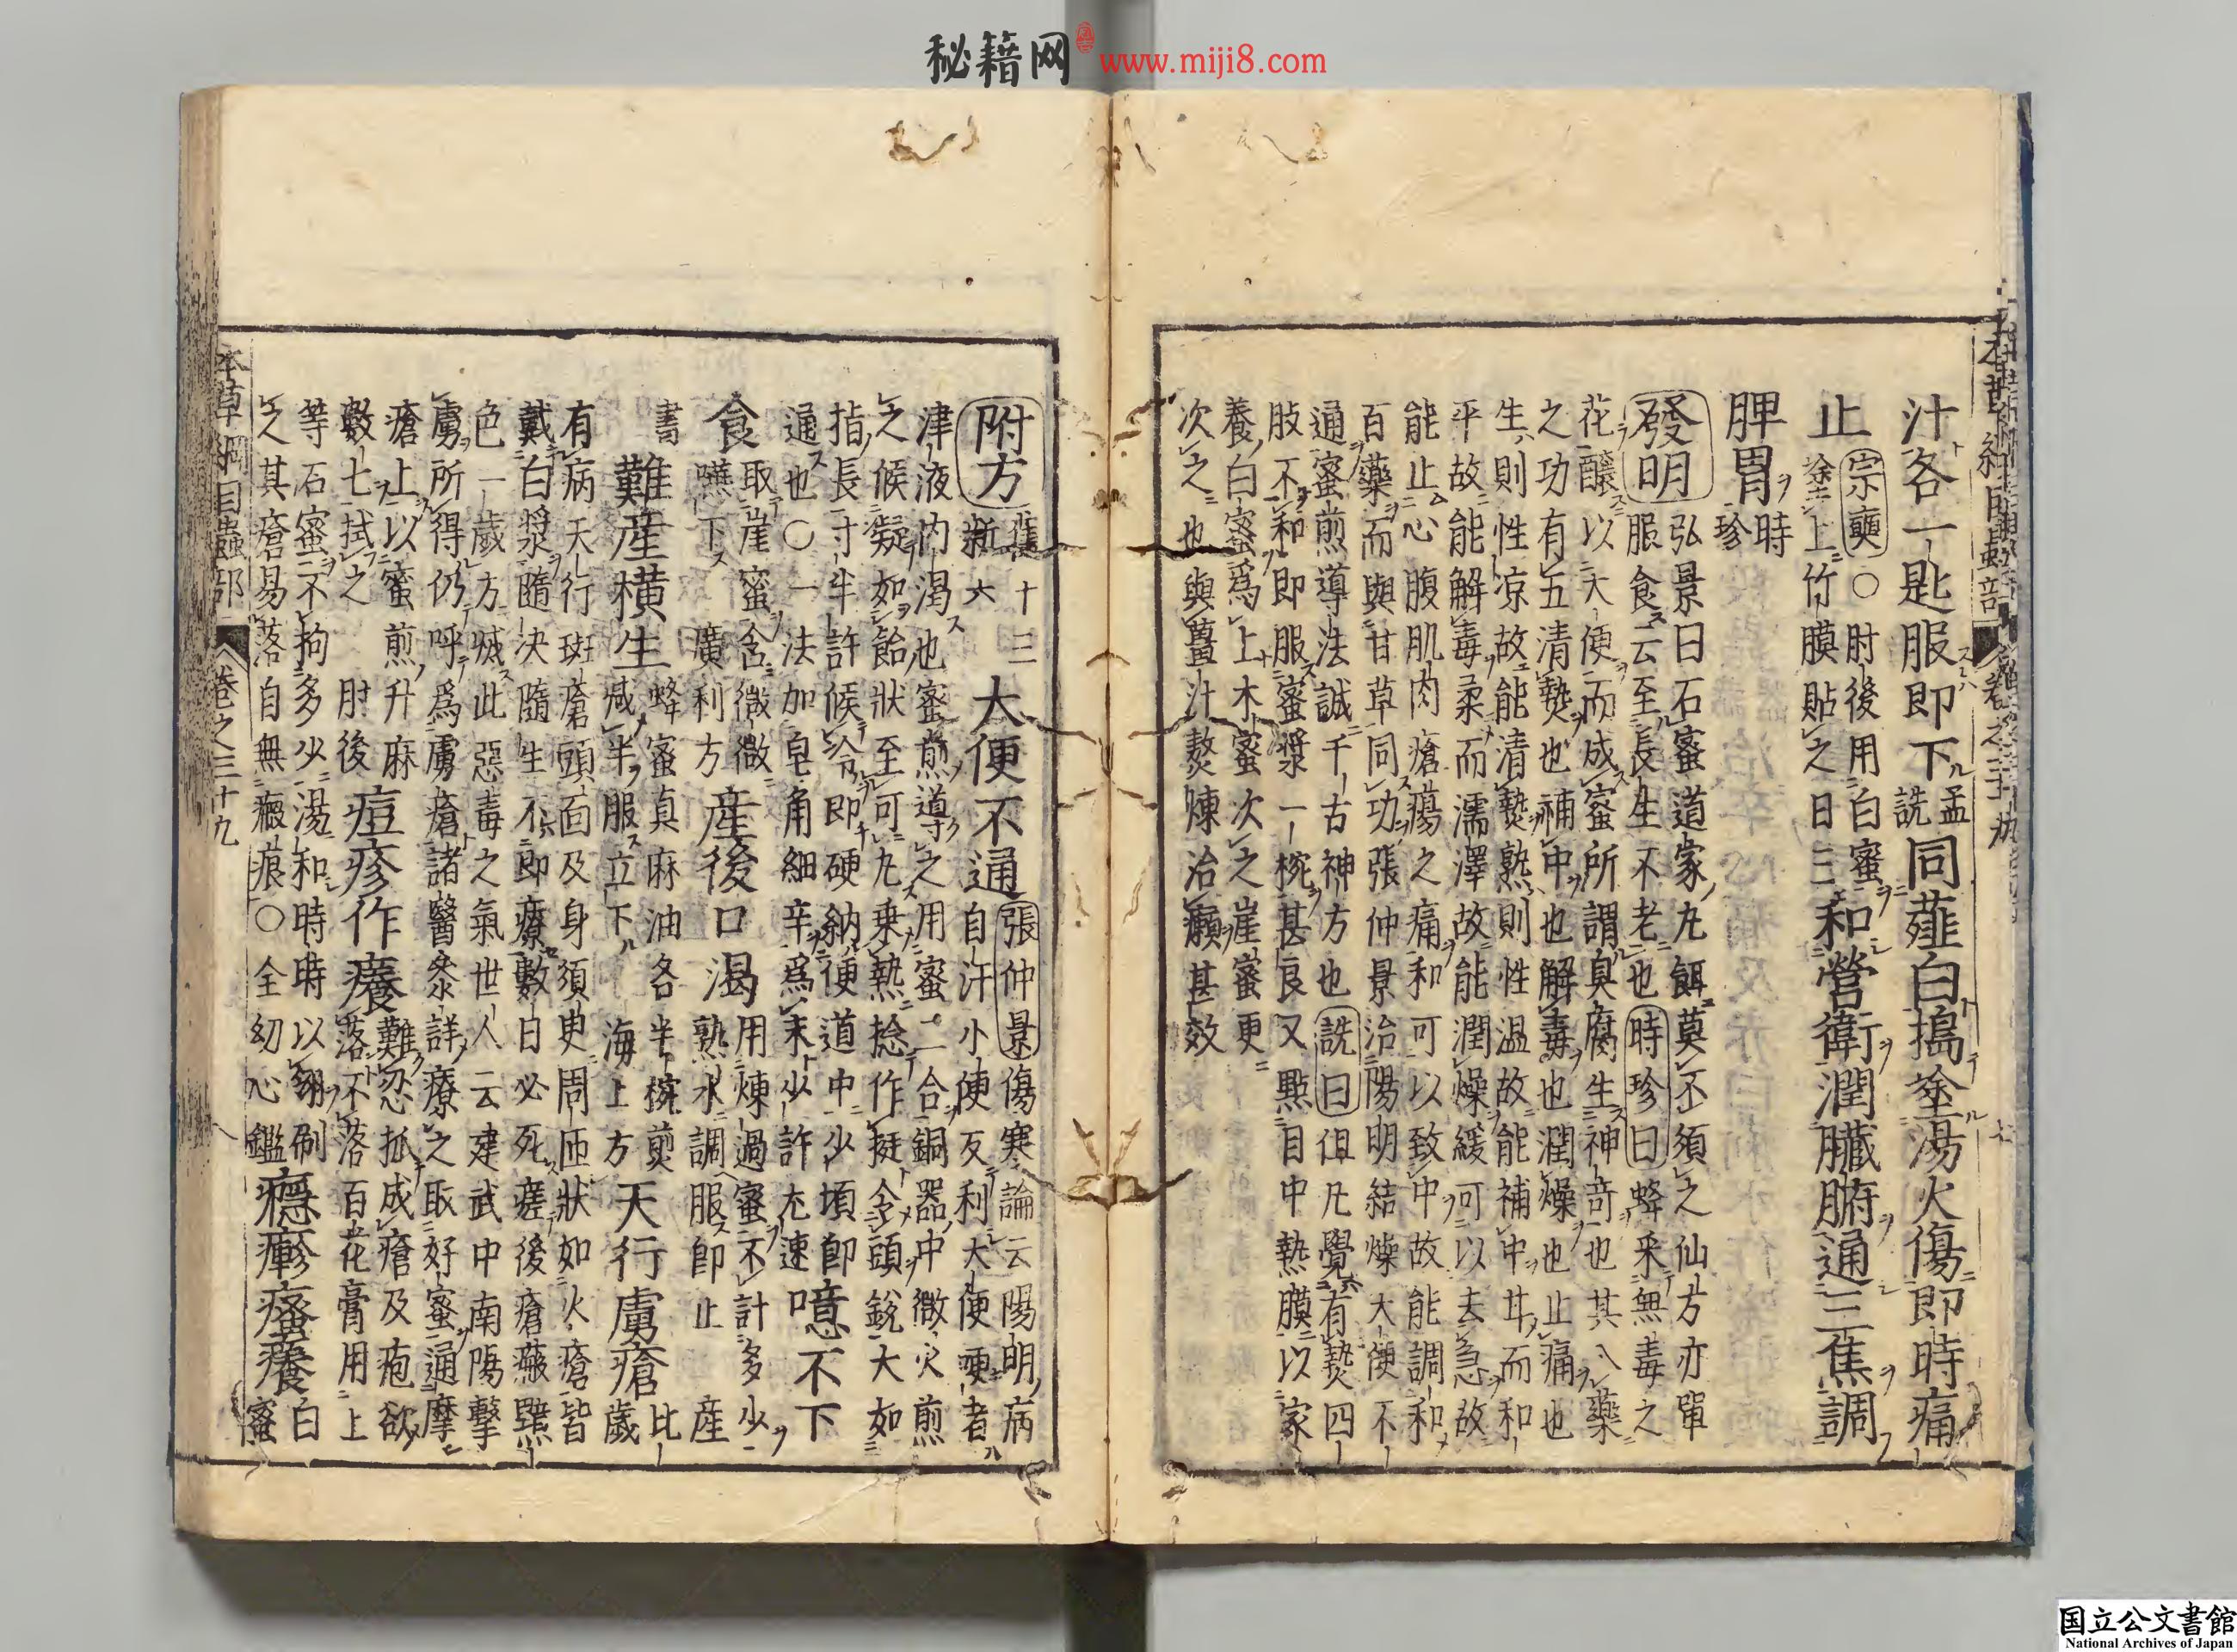 秘籍网 www.miji8.com
汁各一匙服即下孟詵同薤白搗塗湯火傷即時痛
止宗奭○肘後用白蜜塗上竹膜貼之日三和營衛潤臟腑通三焦調
脾胃時珍
發明弘景曰石蜜道家丸餌莫不須之仙方亦單
服食云至長生不老也時珍曰蜂采無毒之
花釀以大便而成蜜所謂臭腐生神奇也其入藥
之功有五清熱也補中也解毒也潤燥也止痛也
生則性凉故能清熱熟則性温故能補中甘而和
平故能解毒柔而濡澤故能潤燥緩可以去急故
能止心腹肌肉瘡瘍之痛和可以致中故能調和
百藥而與甘草同功張仲景治陽明結燥大便不
通蜜煎導法誠千古神方也詵曰但凡覺有熱四
肢不和即服蜜漿一椀甚良又點目中熱膜以家
養白蜜爲上木蜜次之崖蜜更
次之也與薑汁熬煉治癩甚效
附方舊十三新六大便不通張仲景傷寒論云陽明病
自汗小便反利大便哽者
津液内渇也蜜煎導之用蜜二合銅器中微火煎
之候凝如飴狀至可丸乗熱捻作挺令頭銳大如
指長寸半許候冷即硬納便道中少頃卽
通也○一法加皂角細辛爲末少許尢速噫不下
食取崖蜜含微微嚥下廣利方産後口渴用煉過蜜不計多少
熟水調服即止産
書難産横生蜂蜜真麻油各半椀煎減半服立下海上方天行虜瘡比
歲
有病天行斑瘡頭面及身須臾周匝狀如火瘡皆
戴白漿隨決隨生不即療數日必死瘥後瘡瘢黯
色一歲方滅此惡毒之氣世人云建武中南陽擊
虜所得仍呼爲虜瘡諸醫參詳療之取好蜜通摩
瘡上以蜜煎升麻
數七拭之肘後痘疹作癢難忍抓成瘡及疱欲
落不落百花膏用上
等石蜜不拘多少湯和時時以翎刷
之其瘡易落自無瘢痕○全幼心鑑癮疹瘙癢白
蜜
本草綱目蟲部 卷之三十九
国立公文書館
National Archives of Japan